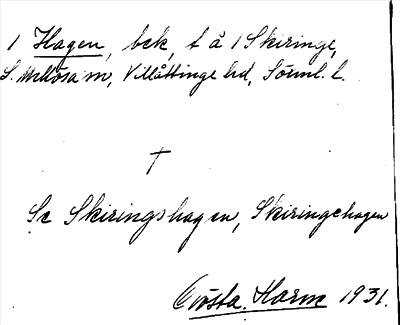 1 Hagen, bck, t å 1 Skiringe,
S. Mellösa sn, Villåttinge hd, Sörml. l.
†
Se Skiringshagen, Skiringehagen
Gösta Harm 1931.